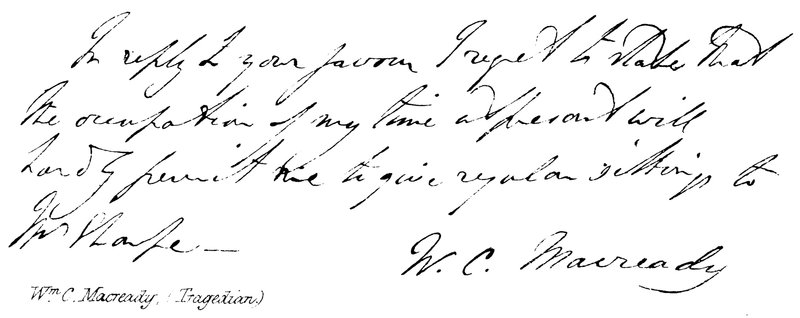 In reply to your favour I regret to state that
the occupation of my time at present will
hardly permit me to give regular sittings to
Mr Sharpe —
W. C. Macready
Wm C. Macready, (Tragedian.)